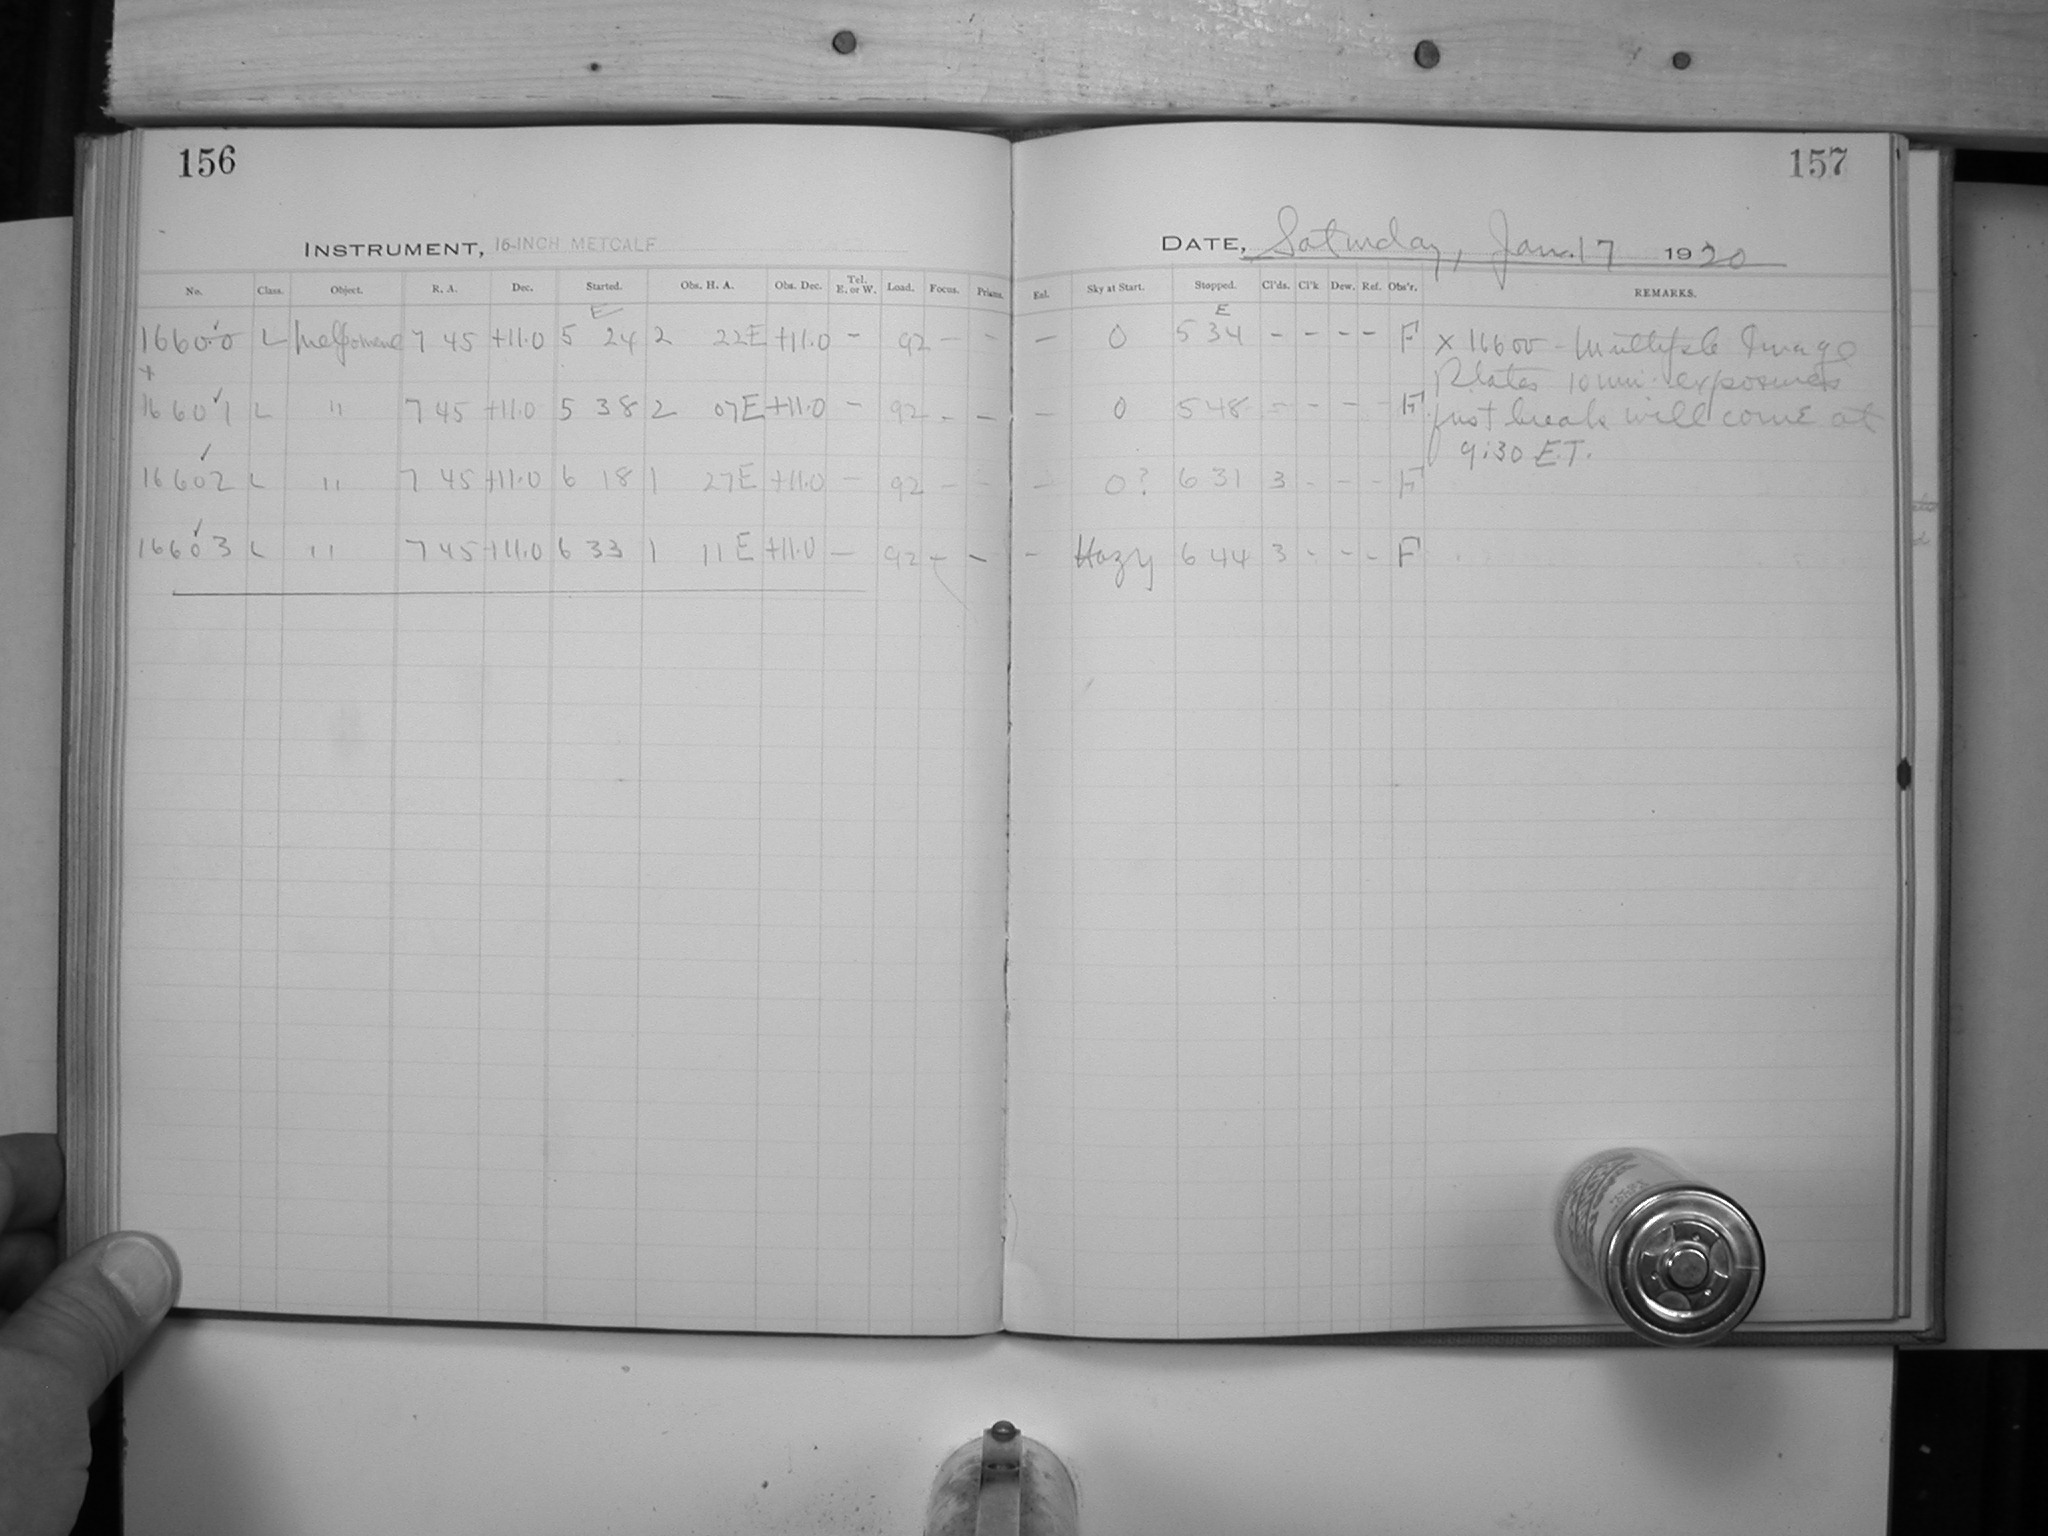 156
157
INSTRUMENT, 16-INCH METCALF
DATE, Saturday, Jan. 17 1920
No. Class. Object. R. A. Dec. Started. Obs. H. A. Obs. Dec. Tel. E. or W. Load. Focus. Prisms. Enl. Sky at Start. Stopped. Cl'ds. Cl'k Dew. Ref. Obs'r. REMARKS.
E E
16600 L Melpomene 7 45 +11.0 5 24 2 22E +11.0 - 92 - - - 0 5 34 - - - - F x 16600 - Multiple Image
x Plates 10 min. exposures
16601 L " 7 45 +11.0 5 38 2 07E +11.0 - 92 - - - 0 5 48 - - - - F first break will come at
9:30 E.T.
16602 L " 7 45 +11.0 6 18 1 27E +11.0 - 92 - - - 0? 6 31 3 - - - F
16603 L " 7 45 +11.0 6 33 1 11E +11.0 - 92 - - - Hazy 6 44 3 - - - F